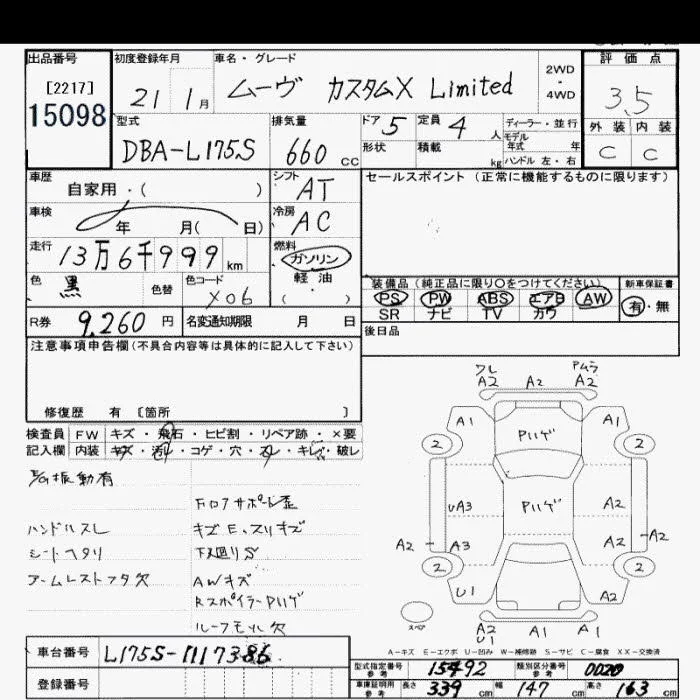 出品番号 初度登録年月 車名・グレード 2WD・4WD 評価点
[2217]
15098 21 1月 ムーヴ カスタムX Limited 3.5
型式 排気量 ドア 5 定員 4人 ディーラー・並行 外装 内装
DBA-L175S 660cc 形状 積載 kg モデル年式 年 C C
ハンドル 左・右
車歴 自家用・( ) シフト AT セールスポイント(正常に機能するものに限ります)
車検 年 月( 日) 冷房 AC
走行 13万6千999km 燃料 ガソリン
色 黒 色替 色コード X06 軽油 ( )
装備品(純正品に限り○をつけてください) 新車保証書
PS PW ABS エアB AW 有・無
SR ナビ TV カワ
R券 9,260円 名変通知期限 月 日 後日品
注意事項申告欄(不具合内容等は具体的に記入して下さい)
修復歴 有 〔箇所 〕
検査員 FW キズ・飛石・ヒビ割・リペア跡・×要
記入欄 内装 キズ・汚レ・コゲ・穴・スレ・キレ・破レ
E/G振動有
Fロアサポート歪
ハンドルスレ キズE、スリキズ
シートヘタリ 下廻りS
アームレストフタ欠 AWキズ
RスポイラーPハゲ
ルーフモール欠
ワレ Pムラ
A2 A2 A2
A1 Pハゲ A1
2 2
UA3 Pハゲ A2
A2 A3 A2 A2
2 2
U1 A2
スペア A2 U1 A1 A1
A-キズ E-エクボ U-凹み W-補修跡 S-サビ C-腐食 XX-交換済
車台番号 L175S-1117386
登録番号
型式指定番号 参考 15492 類別区分番号 参考 0020
車庫証明用 参考 長さ 339cm 幅 147cm 高さ 163cm